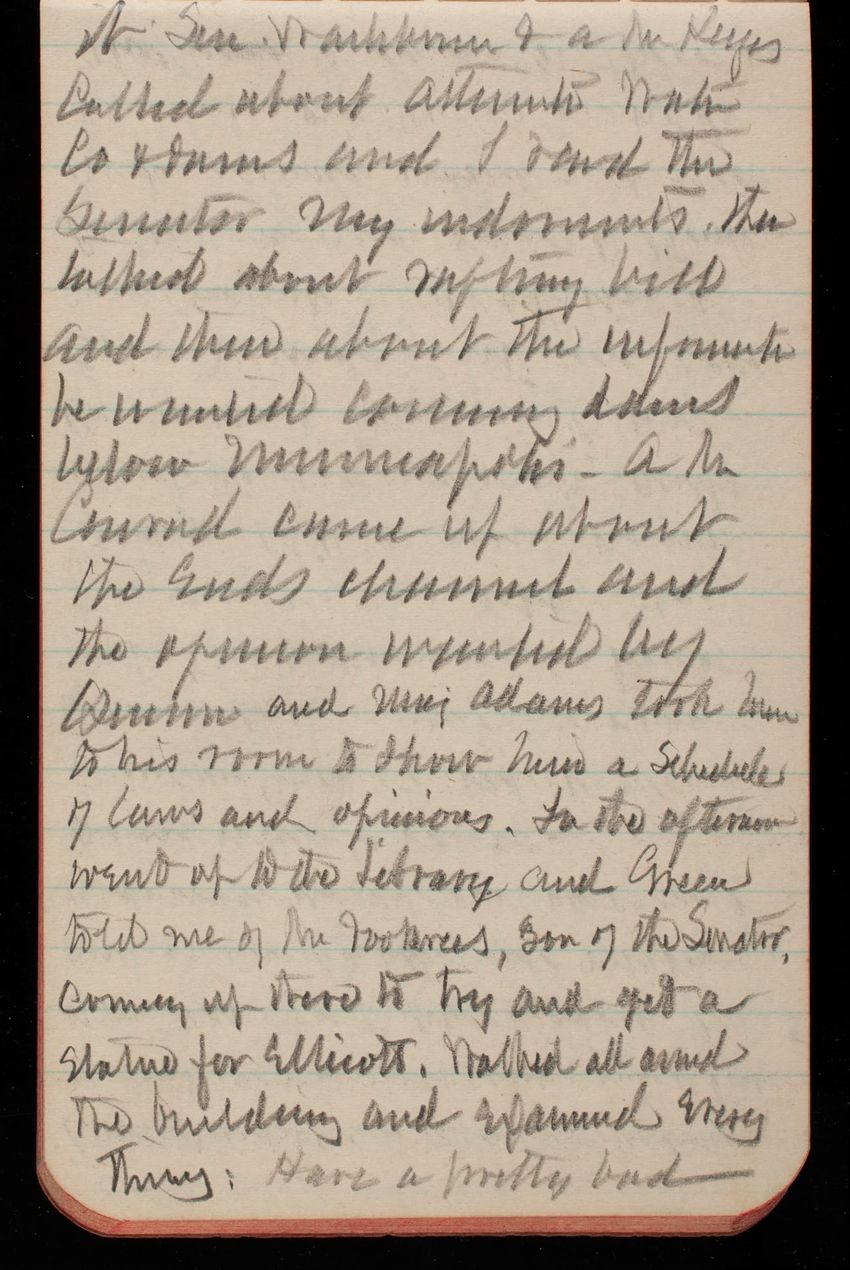 it. Sen. Washburn & a Mr Keyes
Called about Water
Co & dams and I read the
Senator my indorsmts. then
talked about rafting bill
and then about the informate
he wanted concerning dams
below Minneapolis - A Mr
Conrad came up about
the Eads channel and
the opinion wanted by
Quinn and Maj Adams took him
to his room to show him a Schedule
of laws and opinions. In the afternoon
went up to the Library and Green
told me of Mr Voohrees, son of the Senator,
coming up there to try and get a
statue for Ellicott. Walked all around
the building and examined every
thing: Have a pretty bad